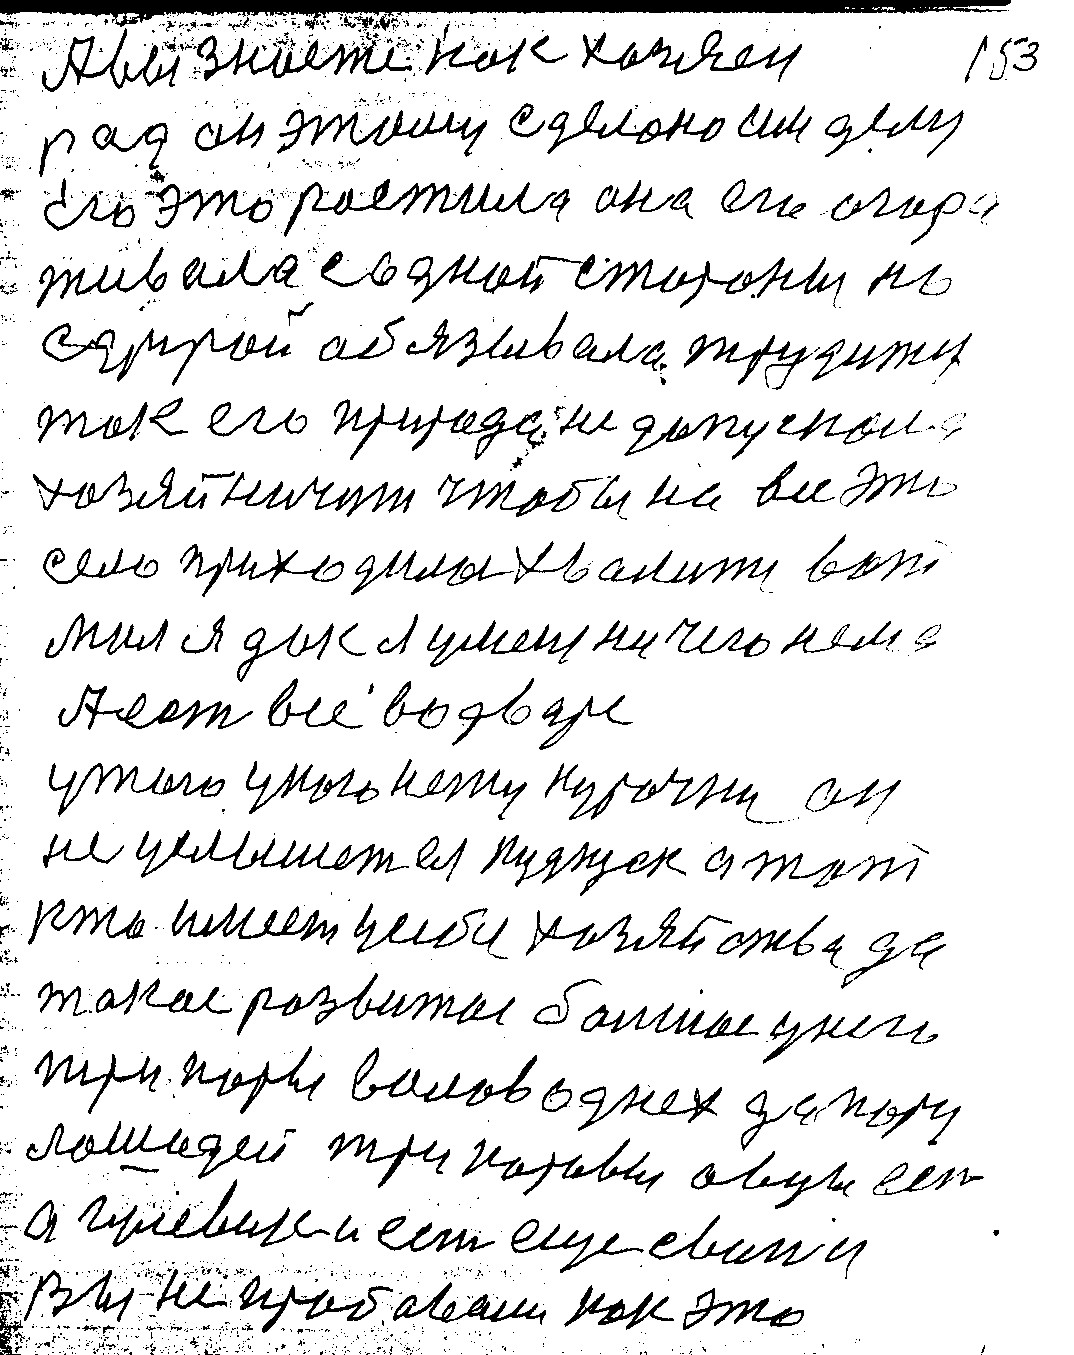 А вы знаете как хозяен 153
рад он этому сделоно сим делу
его это ростила она его огора
живала содной стороны но
сдругой обязывала трудится
так его природа не допускала
хозяйничит чтобы на все это
село приходилос хвалити вот
мил я док я умею ничего нема
А ест все во дворе
утого укого нету курочки он
не услышет ея кудкуск а тот
кто имеет усебе хозяйства да
такое розвитое болшое унего
три пары волов однех да пару
лошедей три каровы овцы ест
а гусевик и ест еще свини
Вы не пробовали как это